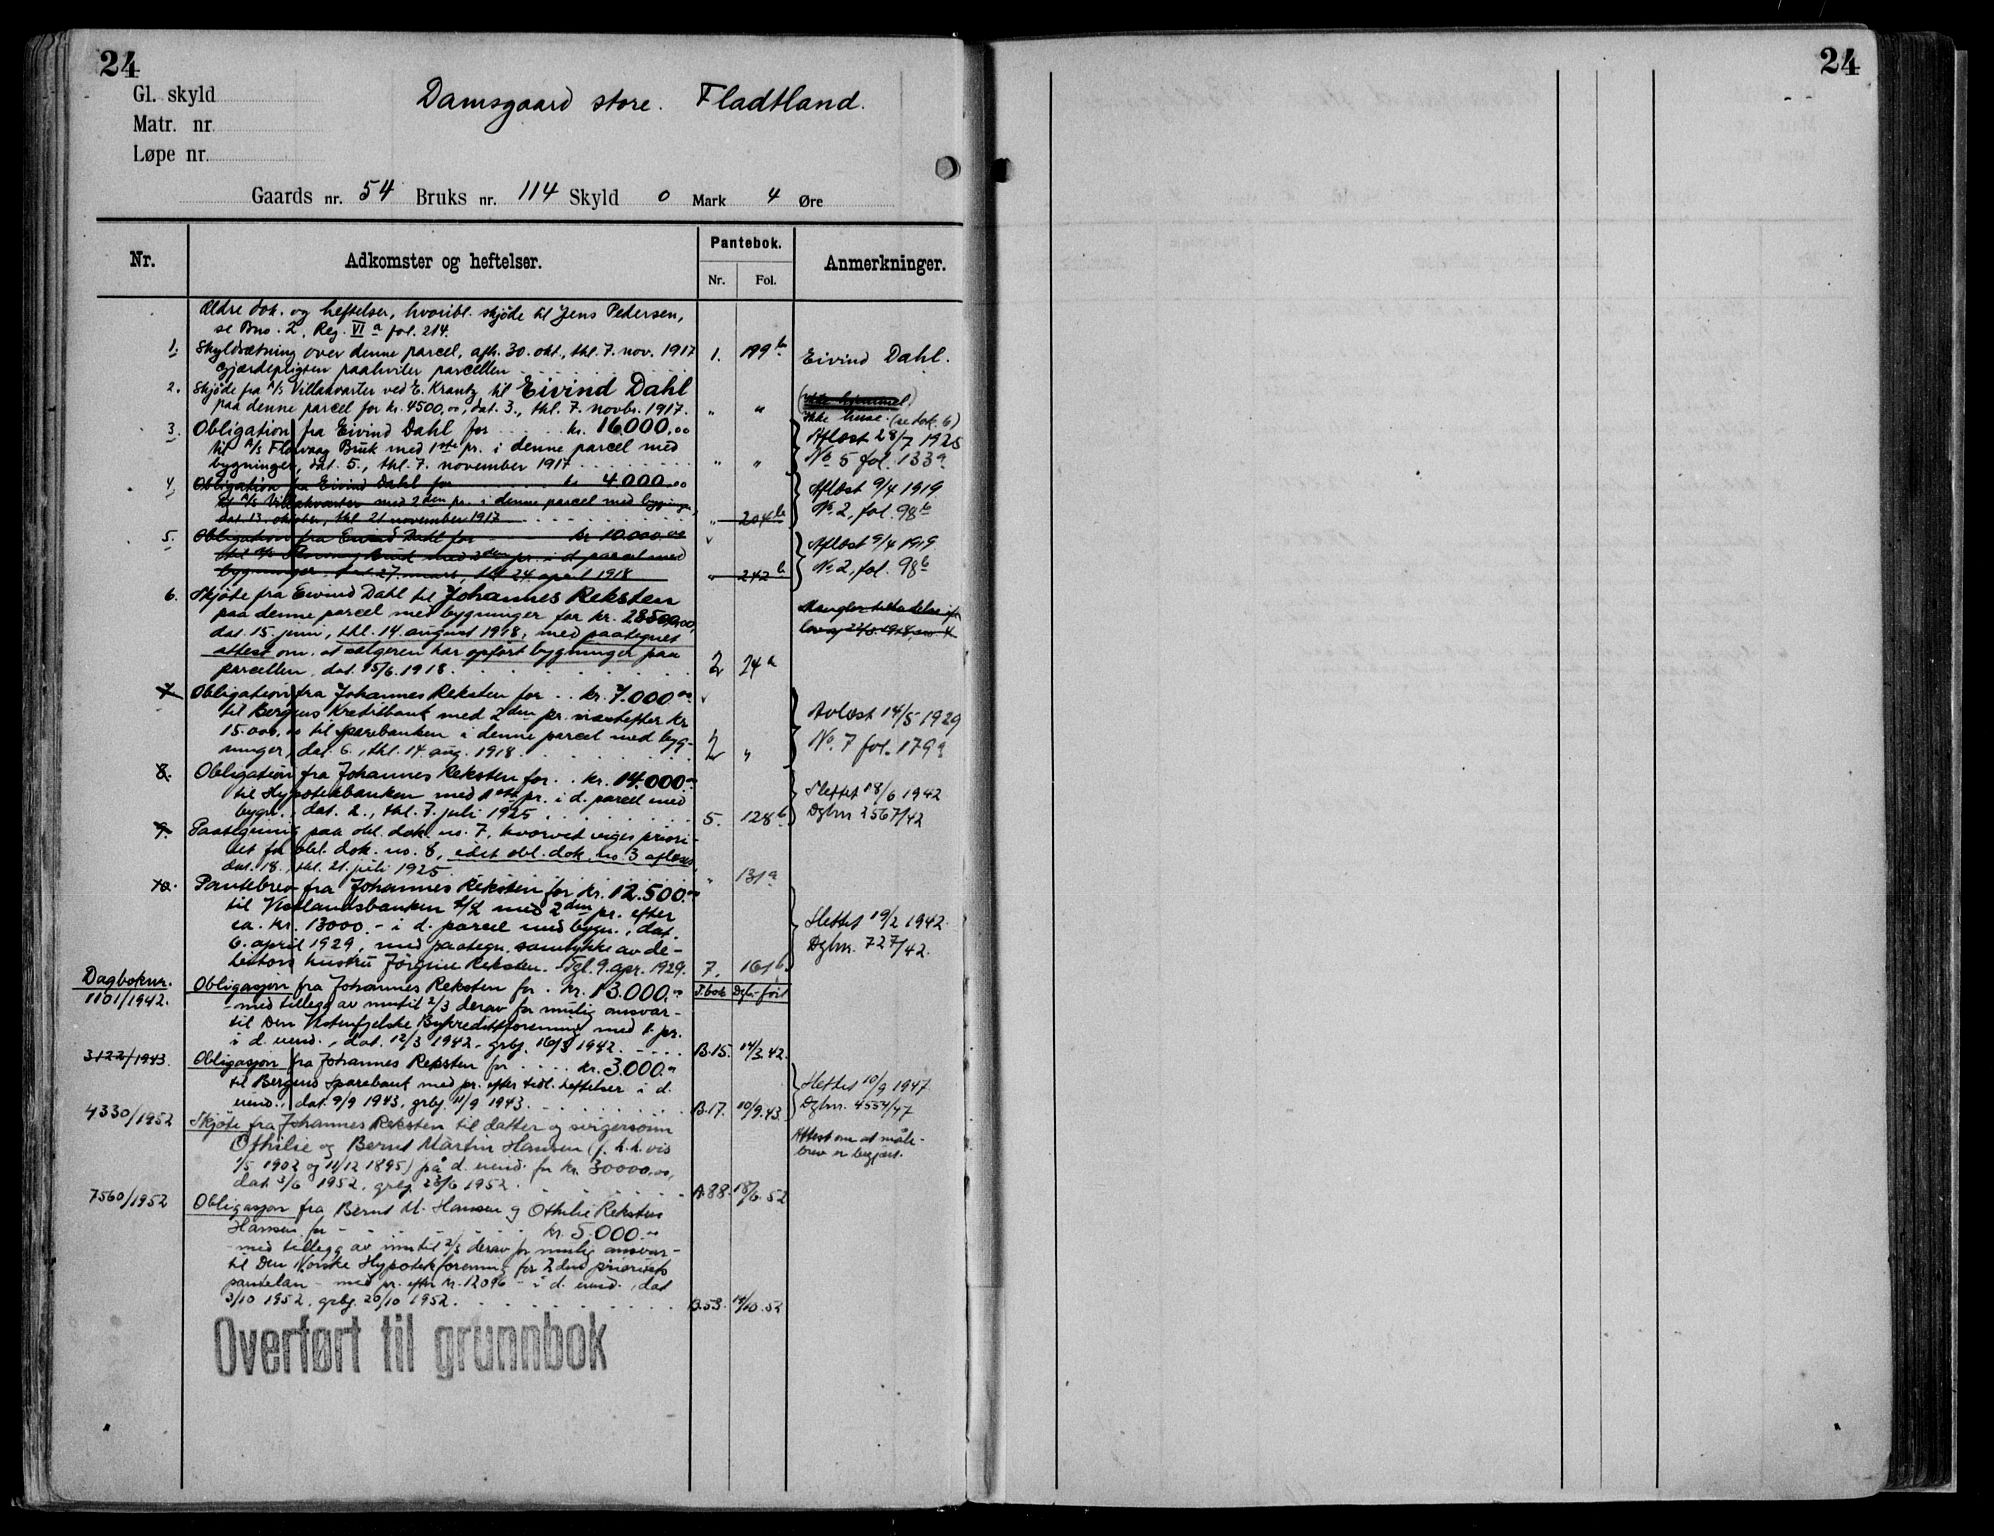 24
24
Gl. skyld
Matr. nr.
Løpe nr.
Damsgaard store. Fladtland.
Gaards nr. 54 Bruks nr. 114 Skyld 0 Mark 4 Øre
Nr. Adkomster og heftelser. Pantebok. Anmerkninger.
Nr. Fol.
Ældre dok. og heftelser, hvoribl. skjøde til Jens Pedersen,
se Bno. 2, Reg. VI a fol. 214.
1. Skyldsætning over denne parcel, afh. 30. okt., thl. 7. nov. 1917 1. 199b Eivind Dahl.
Gjærdepligten paahviler parcellen
2. Skjøde fra A/S Villakvarter ved E. Krantz til Eivind Dahl
paa denne parcel for kr. 4500,00, dat. 3., thl. 7. novbr. 1917. " " ikke huse. (se dok. 6)
3. Obligation fra Eivind Dahl for kr. 16000.00 Aflæst 28/7 1925
til A/S Flovaag Bruk med 1ste pr. i denne parcel med No 5 fol. 133a
bygninger, dat. 5., thl. 7. november 1917 " "
4. Obligation fra Eivind Dahl for kr. 4000.00 Aflæst 9/4 1919
til A/S Villakvarter med 2den pr. i denne parcel med bygninger, No 2, fol. 98b
dat. 13. oktober, thl. 21 november 1917 " 204b
5. Obligation fra Eivind Dahl for kr 10.000.00 Aflæst 9/4 1919
til A/S Flovaag Bruk med 3den pr. i d. parcel med No 2, fol. 98b
bygninger, dat. 27. mars, thl. 24. april 1918 " 242b
6. Skjøte fra Eivind Dahl til Johannes Reksten
paa denne parcel med bygninger for kr. 28500,00, Mangler tilladelse efter
dat. 15. juni, thl. 14. august 1918, med paategnet
attest om, at sælgeren har opført bygninger paa
parcellen, dat. 15/6. 1918. 2 24a
7. Obligation fra Johannes Reksten for kr. 7.000.00
til Bergens Kreditbank med 2den pr. næstefter kr Avlæst 14/5 1929
15.000,00 til Sparebanken i denne parcel med byg- No. 7 fol. 179a
ninger, dat. 6., thl. 14. aug. 1918. 2 "
8. Obligation fra Johannes Reksten for kr. 14.000.-
til Hypotekbanken med 1ste pr. i d. parcel med Slettet 18/6 1942
bygn., dat. 2., thl. 7. juli 1925 5. 128b Dgbnr 2567/42
9. Paategning paa obl. dok. no. 7, hvorved viges priori-
tet for obl. dok. no. 8, idet obl. dok. no. 3 aflæses
dat. 18., thl. 21. juli 1925. " 131a
10. Pantebrev fra Johannes Reksten for kr. 12.500.-
til Vestlandsbanken A/L med 2den pr. efter
ca. kr. 13000.- i d. parcel med bygn., dat. Slettet 19/2 1942.
6. april 1929, med paategn. samtykke av de- Dgbnr. 727/42.
bitors hustru Jørgine Reksten. Tgl. 9. apr. 1929. 7. 161b
Dagboknr.
1101/1942. Obligasjon fra Johannes Reksten for kr. 13.000.- P.bok Dgb.-ført
- med tillegg av inntil 2/3 derav for mulig ansvar -
til Den Vestenfjelske Bykredittforening med 1. pr.
i d. eiend., dat. 12/3 1942, grbj. 16/3 1942. B.15. 14/3.42.
3122/1943. Obligasjon fra Johannes Reksten for kr. 3.000.-
til Bergens Sparebank med pr. efter tidl. heftelser i d. Slettet 10/9 1947.
eiend., dat. 9/9 1943, grbj. 11/9 1943. B.17. 10/9.43. Dgbnr. 4554/47
4330/1952 Skjøte fra Johannes Reksten til datter og svigersønn Attest om at måle-
Othilie og Bernt Martin Hansen (f. h.h.vis brev er begjært.
1/5 1902 og 11/12 1895) på d. eiend. for kr. 30000.00,
dat. 3/6 1952, grbj. 23/6 1952. A.88. 18/6.52
7560/1952 Obligasjon fra Bernt M. Hansen og Othilie Reksten
Hansen for kr. 5.000.-
- med tillegg av inntil 2/3 derav for mulig ansvar -
til Den Norske Hypotekforening for 2den prioritets
pantelån - med pr. efter kr. 12096 - i d. eiend., dat
3/10 1952, grbj. 20/10 1952. B.53. 14/10.52
Overført til grunnbok